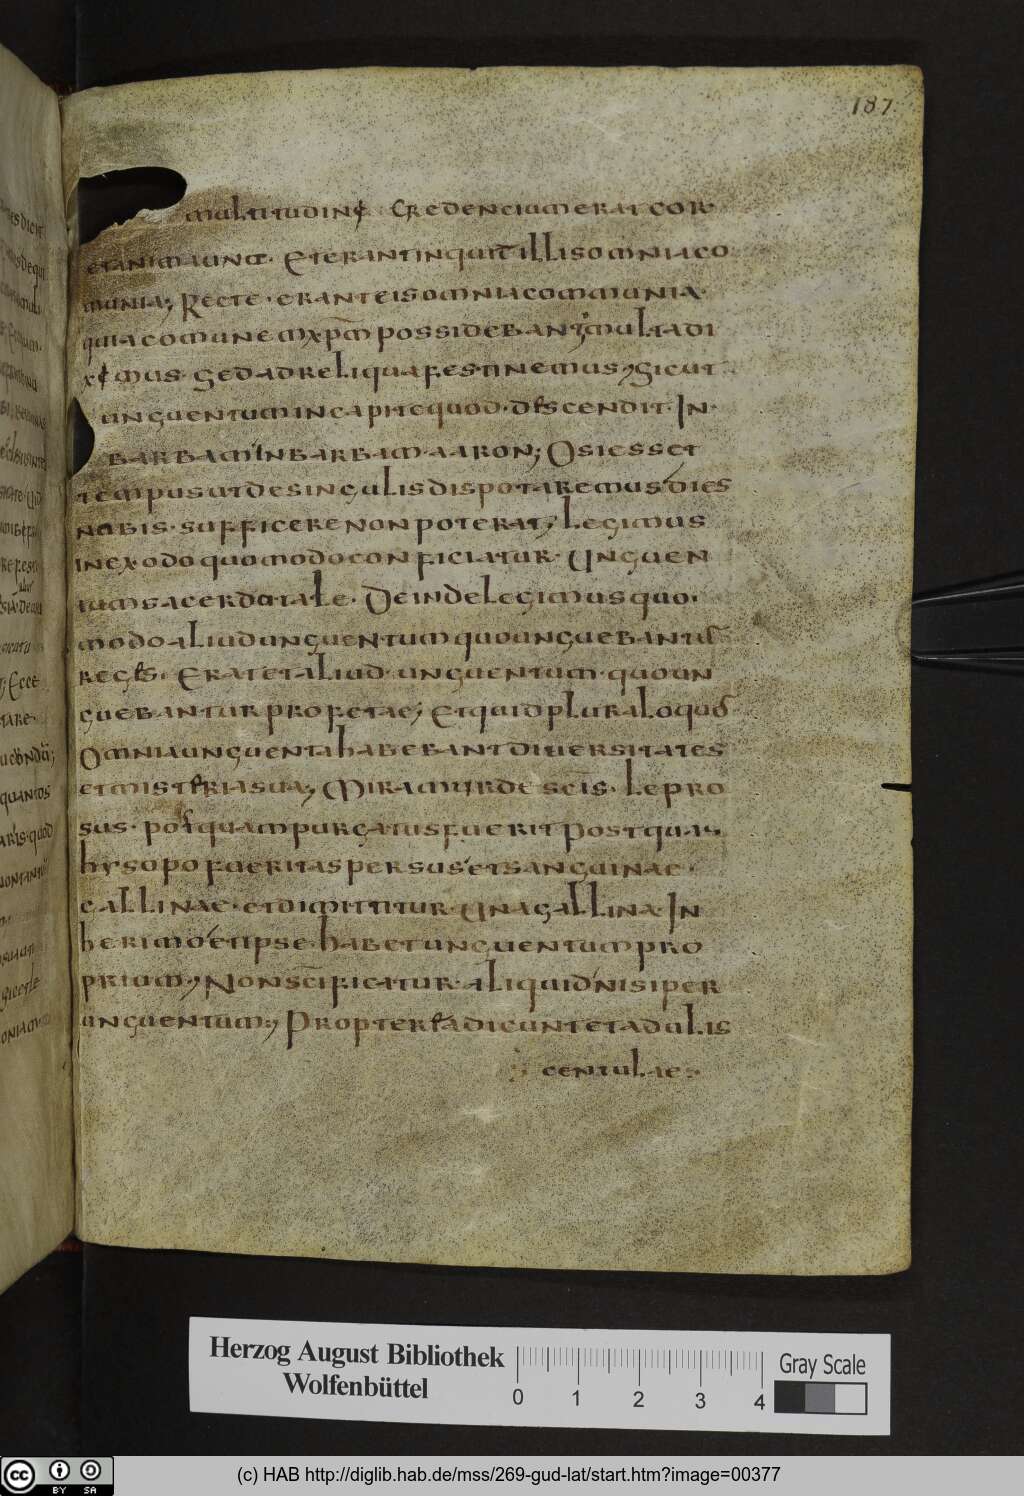 187
multitudinę credencium erat cor
et anima una. Et erant inquid illis omnia co
munia; Recte. erant eis omnia communia.
quia comunem xpm possidebant; multa di
ximus. Sed ad reliqua festinemus; Sicut
unguentum in capite quod. descendit. In.
barbam in barbam aaron; O si esset
tempus ut de singulis disputaremus dies
nobis. sufficere non poterat; Legimus
in exodo quomodo conficiatur. Unguen
tum sacerdotale. Deinde legimus quo.
modo aliud unguentum quo unguebantur
reges. Erat et aliud. unguentum. quo un
guebantur profetae; Et quid plura loquor
Omnia unguenta habebant diversitates
et misteria sua; Miramur de scis. lepro
sus. postquam purgatus fuerit postquam
hysopo fuerit aspersus et sanguinae.
gallinae. et dimittitur. Una gallina. In
herimo et ipse. habet unguentum pro
prium; Non scificatur. aliquid nisi per
unguentum; Propterea dicunt et adulis
centulae.
Herzog August Bibliothek
Wolfenbüttel
0 1 2 3 4
Gray Scale
cc BY SA
(c) HAB http://diglib.hab.de/mss/269-gud-lat/start.htm?image=00377